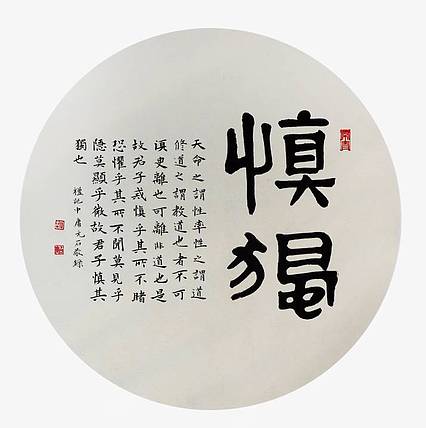 慎獨
天命之謂性率性之謂道
修道之謂教道也者不可
須臾離也可離非道也是
故君子戒慎乎其所不睹
恐懼乎其所不聞莫見乎
隱莫顯乎微故君子慎其
獨也
禮記中庸元石敬錄